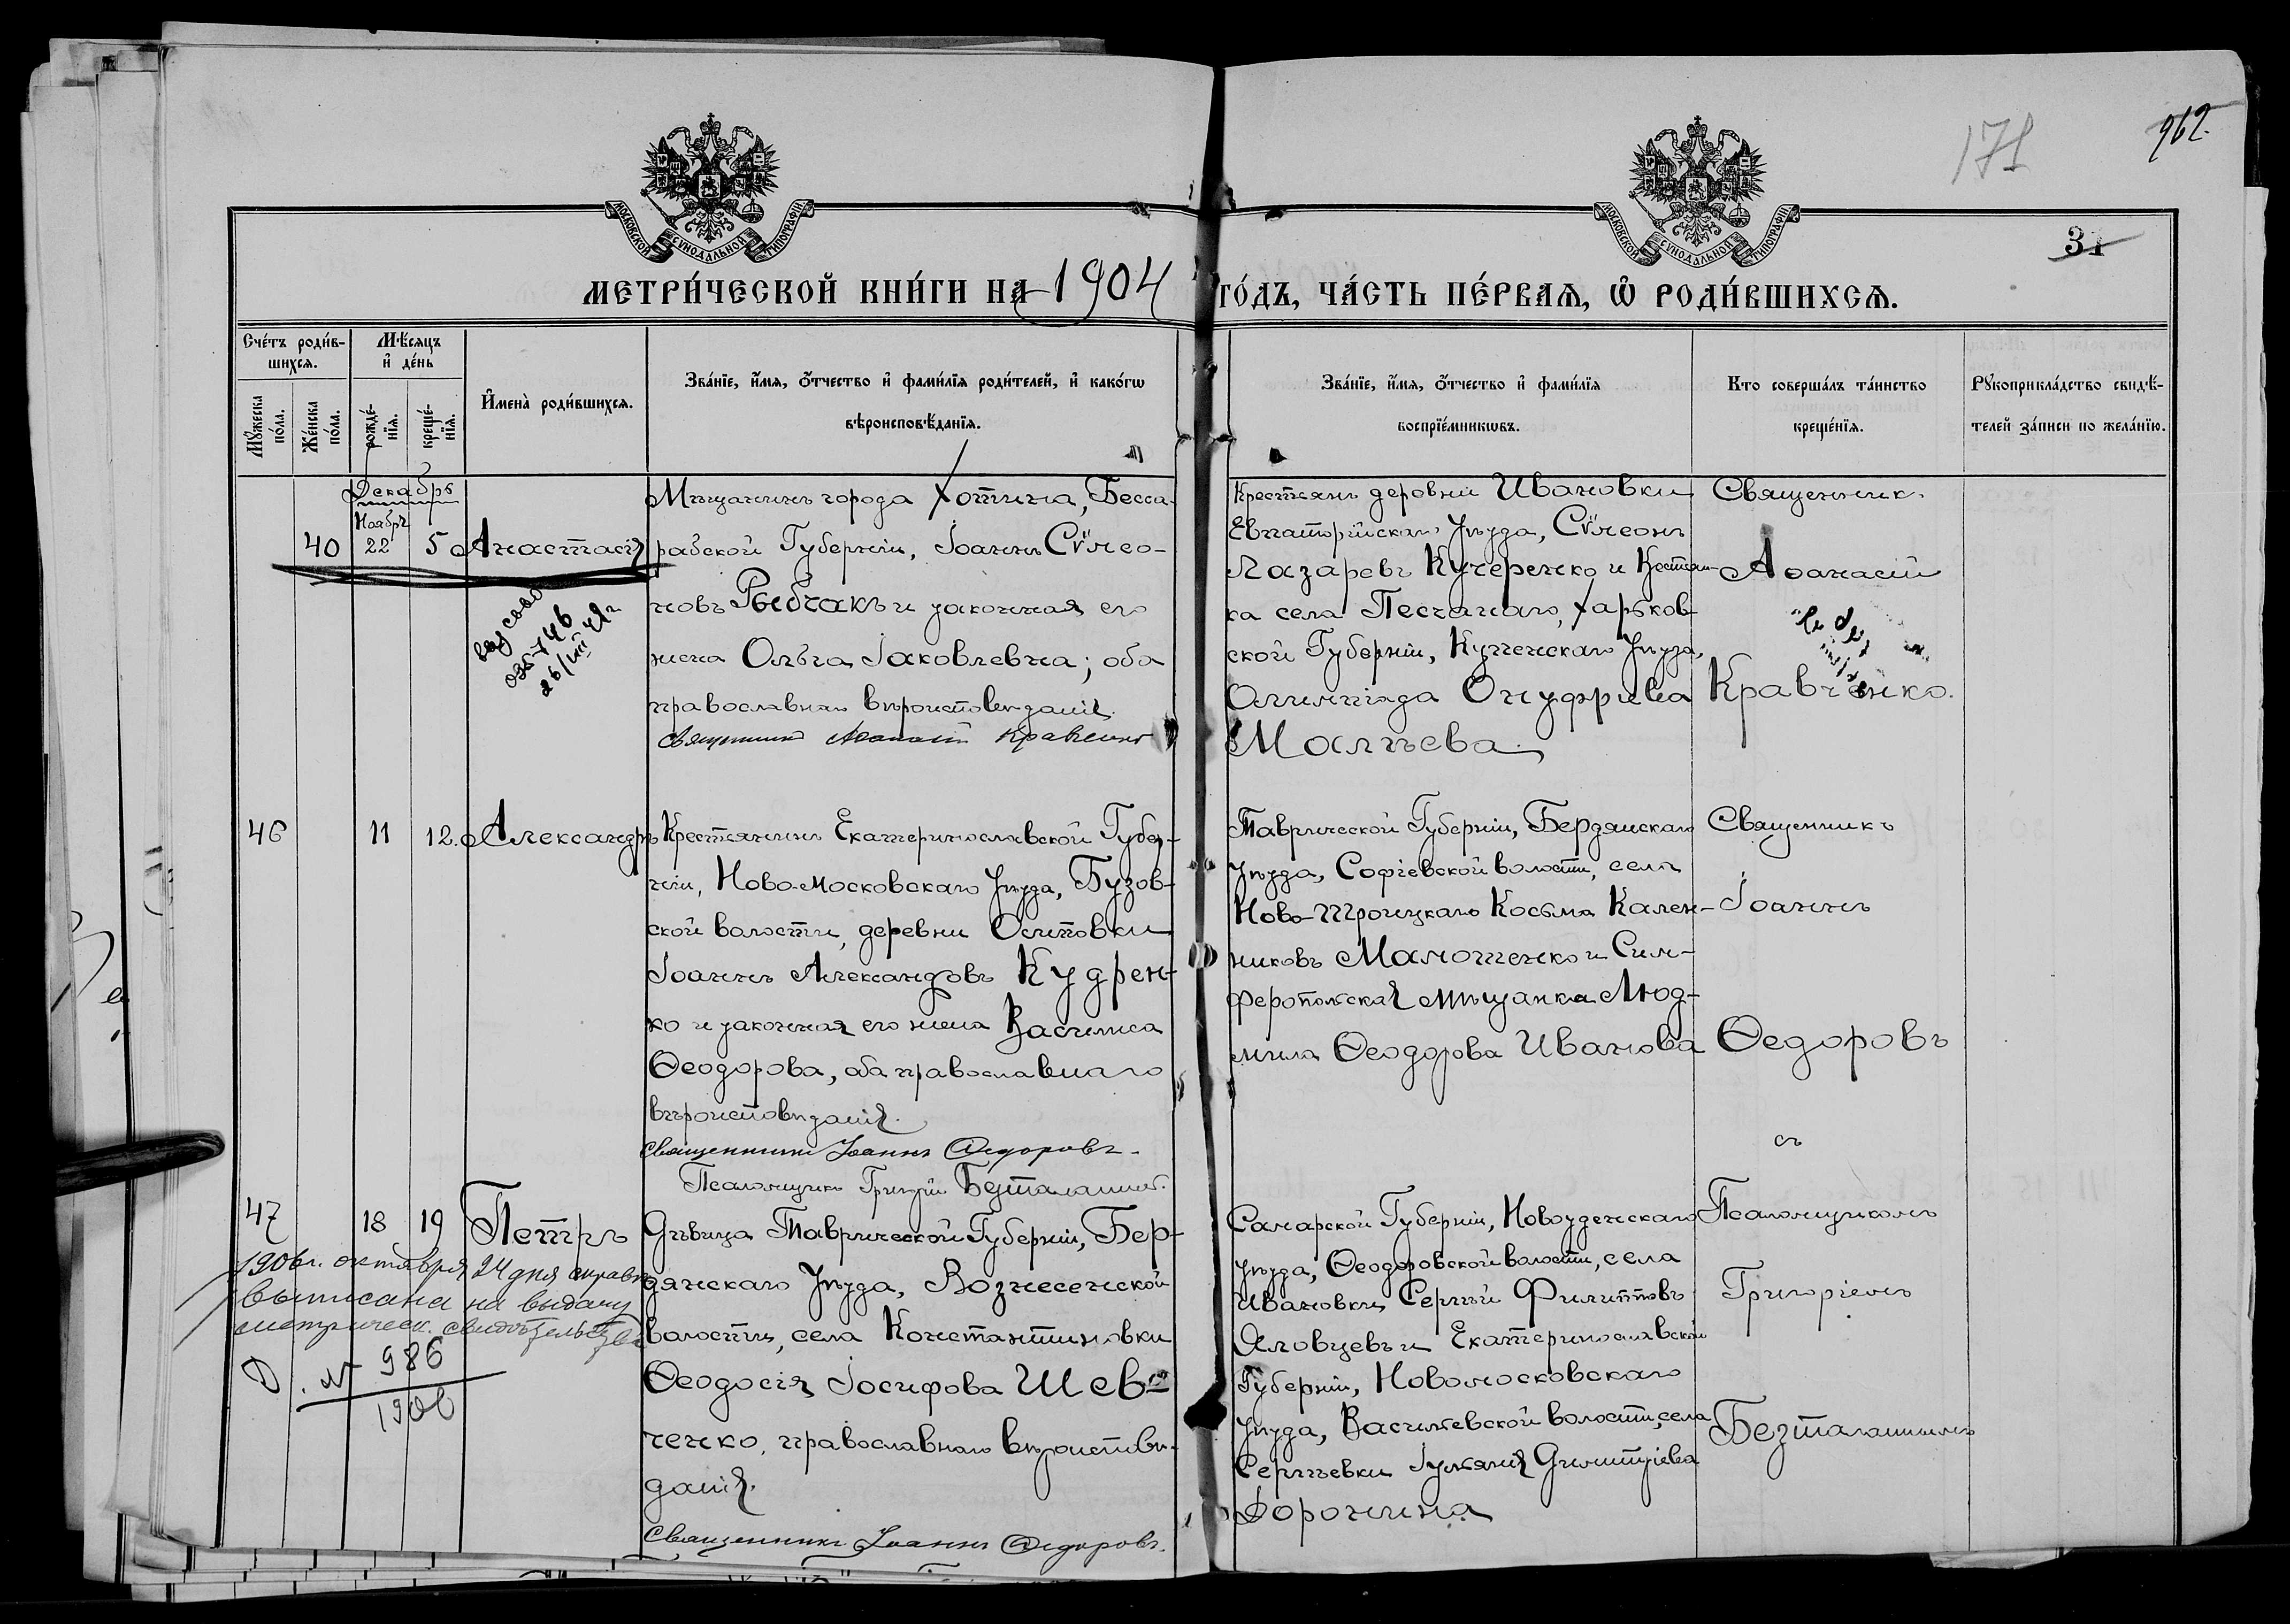 171
962.
МОСКОВСКОЙ СѴНОДАЛЬНОЙ ТИПОГРАФІИ
МОСКОВСКОЙ СѴНОДАЛЬНОЙ ТИПОГРАФІИ
31
МЕТРИ́ЧЕСКОЙ КНИ́ГИ НА 1904 ГО́ДЪ, ЧА́СТЬ ПЕ́РВАЯ, Ѡ РОДИ́ВШИХСЯ.
Сче́тъ роди́в-
шихся.
Мꙋжеска по́ла.
Же́нска по́ла.
Мѣ́сяцъ
и҆ де́нь
рожде́-
нїя.
креще́-
нїя.
И҆мена̀ роди́вшихся.
Зва́нїе, и҆́мя, ѻ҆́тчество и҆ фами́лїя роди́телей, и҆ како́гѡ
вѣроисповѣ́данїя.
Зва́нїе, и҆́мя, ѻ҆́тчество и҆ фами́лїя
воспрїе́мникѡвъ.
Кто соверша́лъ та́инство
креще́нїя.
Рꙋкоприкла́дство свидѣ́-
телей за́писи по жела́нїю.
Декабрь
Ноябрь
40 22 5 Анастасія
Мѣщанинъ города Хотина, Бесса-
рабской Губерніи, Іоаннъ Сѵмео-
новъ Рыбчакъ и законная его
жена Ольга Іаковлевна; оба
православнаго вѣроисповѣданія.
Священникъ Аѳанасій Кравченко
26/VIII
Крестьянъ деревни Ивановки
Евпаторійскаго Уѣзда, Сѵмеонъ
Лазаревъ Кучеренко и Крестьян-
ка села Песчанаго, Харьков-
ской Губерніи, Купенскаго Уѣзда,
Олимпіада Онуфріева
Малѣева.
Священник.
Аѳанасій
Кравченко.
46 11 12. Александръ
Крестьянинъ Екатеринославской Губер-
ніи, Ново-московскаго Уѣзда, Бузов-
ской волости, деревни Осиповки
Іоаннъ Александровъ Кудрен-
ко и законная его жена Васимиса
Ѳеодорова, оба православнаго
вѣроисповѣданія.
Священникъ Іоаннъ Ѳедоровъ.
Псаломщикъ Григорій Безталанный.
Таврической Губерніи, Бердянскаго
Уѣзда, Софіевской волости, села
Ново-Троицкаго Косьма Кален-
никовъ Мамотенко и Сим-
феропольская мѣщанка Люд-
мила Ѳеодорова Иванова
Священникъ
Іоаннъ
Ѳедоровъ
съ
47 18 19 Петръ
1906 г. октября 24 дня справка
выписана на выдачу
метрическ. свидѣтельства
№ 986
1906
Дѣвица Таврической Губерніи, Бер-
дянскаго Уѣзда, Вознесенской
волости, села Константиновки
Ѳеодосія Іосифова Шев-
ченко, православнаго вѣроисповѣ-
данія.
Священникъ Іоаннъ Ѳедоровъ.
Самарской Губерніи, Новоузенскаго
Уѣзда, Ѳеодоровской волости, села
Ивановки Сергій Филипповъ
Яловцевъ и Екатеринославской
Губерніи, Новомосковскаго
Уѣзда, Васильевской волости, села
Сергѣевки Іуліанія Димитріева
Доронина
Псаломщикомъ
Григоріемъ
Безталаннымъ